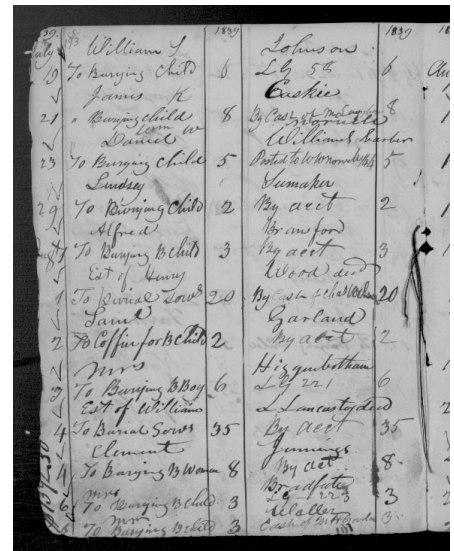 1839 1839
July
William S Johnson
19 To Burying Child 6 LG 5th 6
James K Caskie
21 " Burying child 8 By Cash 8
Daniel W Williams
23 To Burying Child 5 Posted to 5
Lindsey Sumaker
29 To Burying Child 2 By acct 2
Alfred Bransford
To Burying B Child 3 By acct 3
Est of Henry Wood decd
1 To Burial 20 By Cash 20
Saml Garland
2 To Coffin for B Child 2 By acct 2
Mrs Higginbotham
2 To Burying B Boy 6 LG 221 6
Est of William Lancaster decd
4 To Burial 35 By acct 35
Clement Jennings
4 To Burying B Woman 8 By act 8
Mrs Bradfute
6 To Burying B Child 3 LG 223 3
Mrs Waller
6 To Burying B child 3 Cash 3